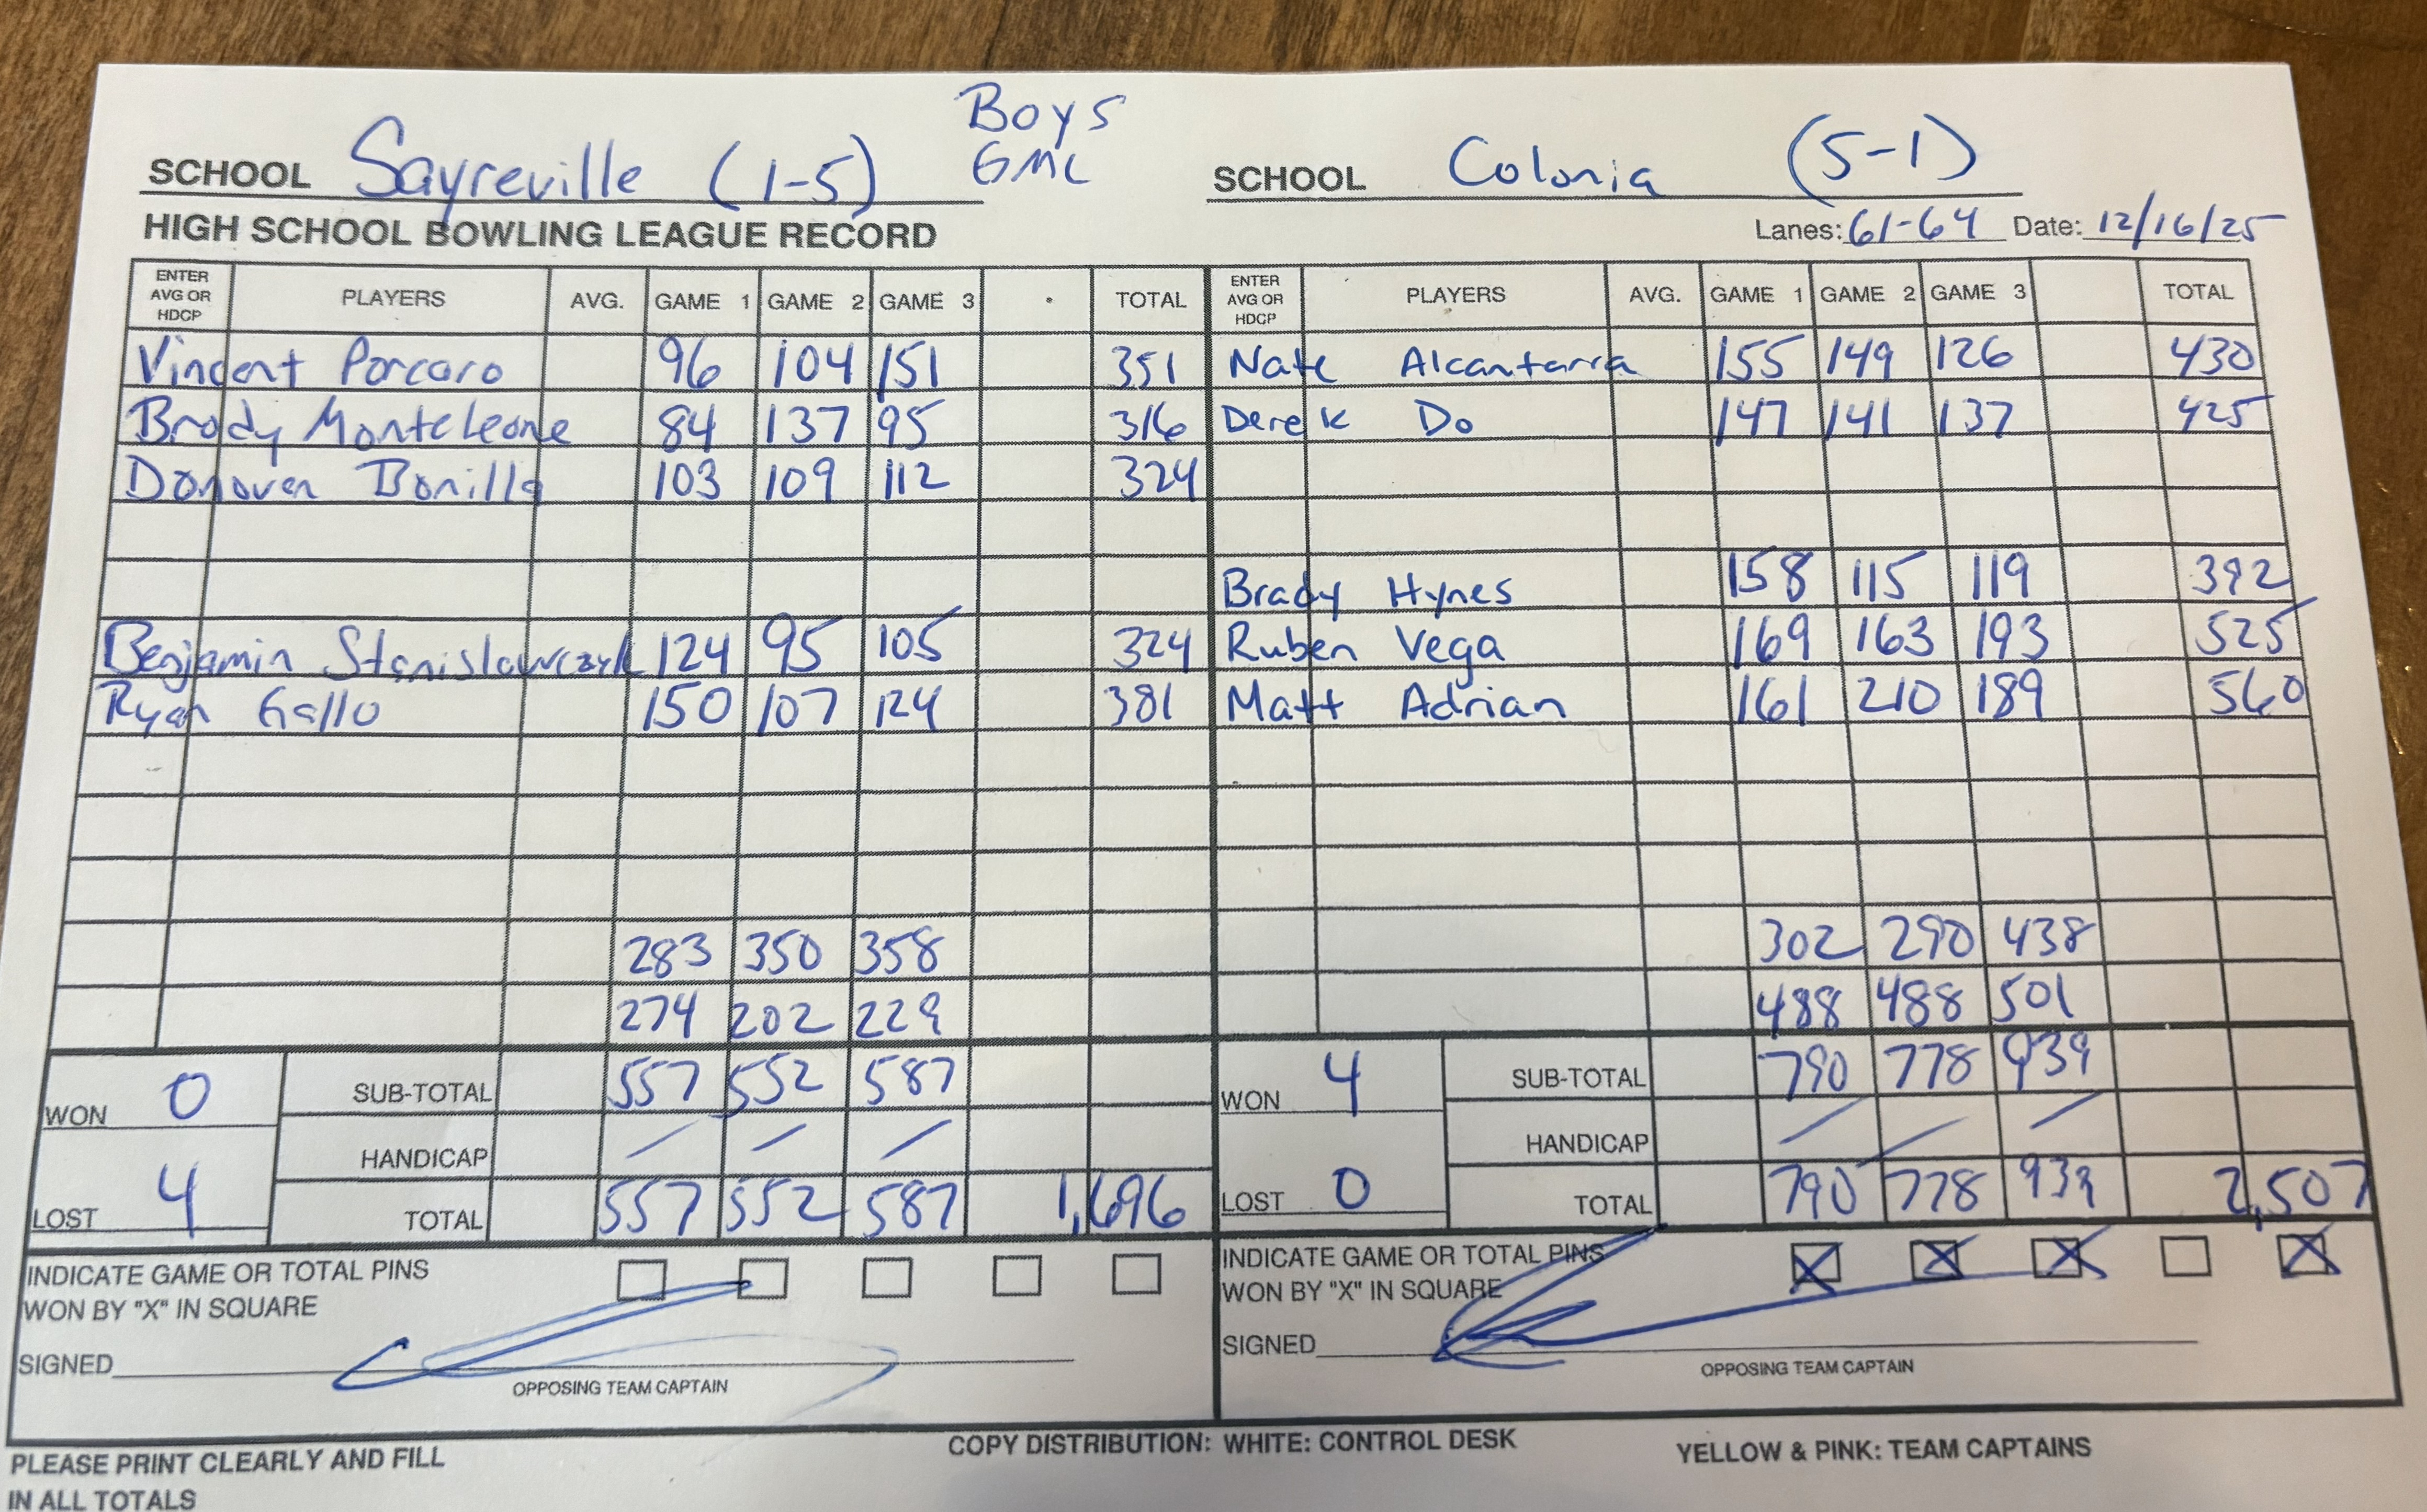 Boys
GMC
SCHOOL Sayreville (1-5)
SCHOOL Colonia (5-1)
HIGH SCHOOL BOWLING LEAGUE RECORD
Lanes: 61-64 Date: 12/16/25
ENTER AVG OR HDCP PLAYERS AVG. GAME 1 GAME 2 GAME 3 TOTAL ENTER AVG OR HDCP PLAYERS AVG. GAME 1 GAME 2 GAME 3 TOTAL
Vincent Porcaro 96 104 151 351 Nate Alcantarra 155 149 126 430
Brody Monteleone 84 137 95 316 Derek Do 147 141 137 425
Donovan Bonilla 103 109 112 324
Brady Hynes 158 115 119 392
Benjamin Stanislawczyk 124 95 105 324 Ruben Vega 169 163 193 525
Ryan Gallo 150 107 124 381 Matt Adrian 161 210 189 560
283 350 358 302 290 438
274 202 229 488 488 501
WON 0 SUB-TOTAL 557 552 587 WON 4 SUB-TOTAL 790 778 939
HANDICAP / / / HANDICAP / / /
LOST 4 TOTAL 557 552 587 1,696 LOST 0 TOTAL 790 778 939 2,507
INDICATE GAME OR TOTAL PINS
WON BY "X" IN SQUARE
INDICATE GAME OR TOTAL PINS
WON BY "X" IN SQUARE X X X X
SIGNED
OPPOSING TEAM CAPTAIN
SIGNED
OPPOSING TEAM CAPTAIN
PLEASE PRINT CLEARLY AND FILL
IN ALL TOTALS
COPY DISTRIBUTION: WHITE: CONTROL DESK YELLOW & PINK: TEAM CAPTAINS